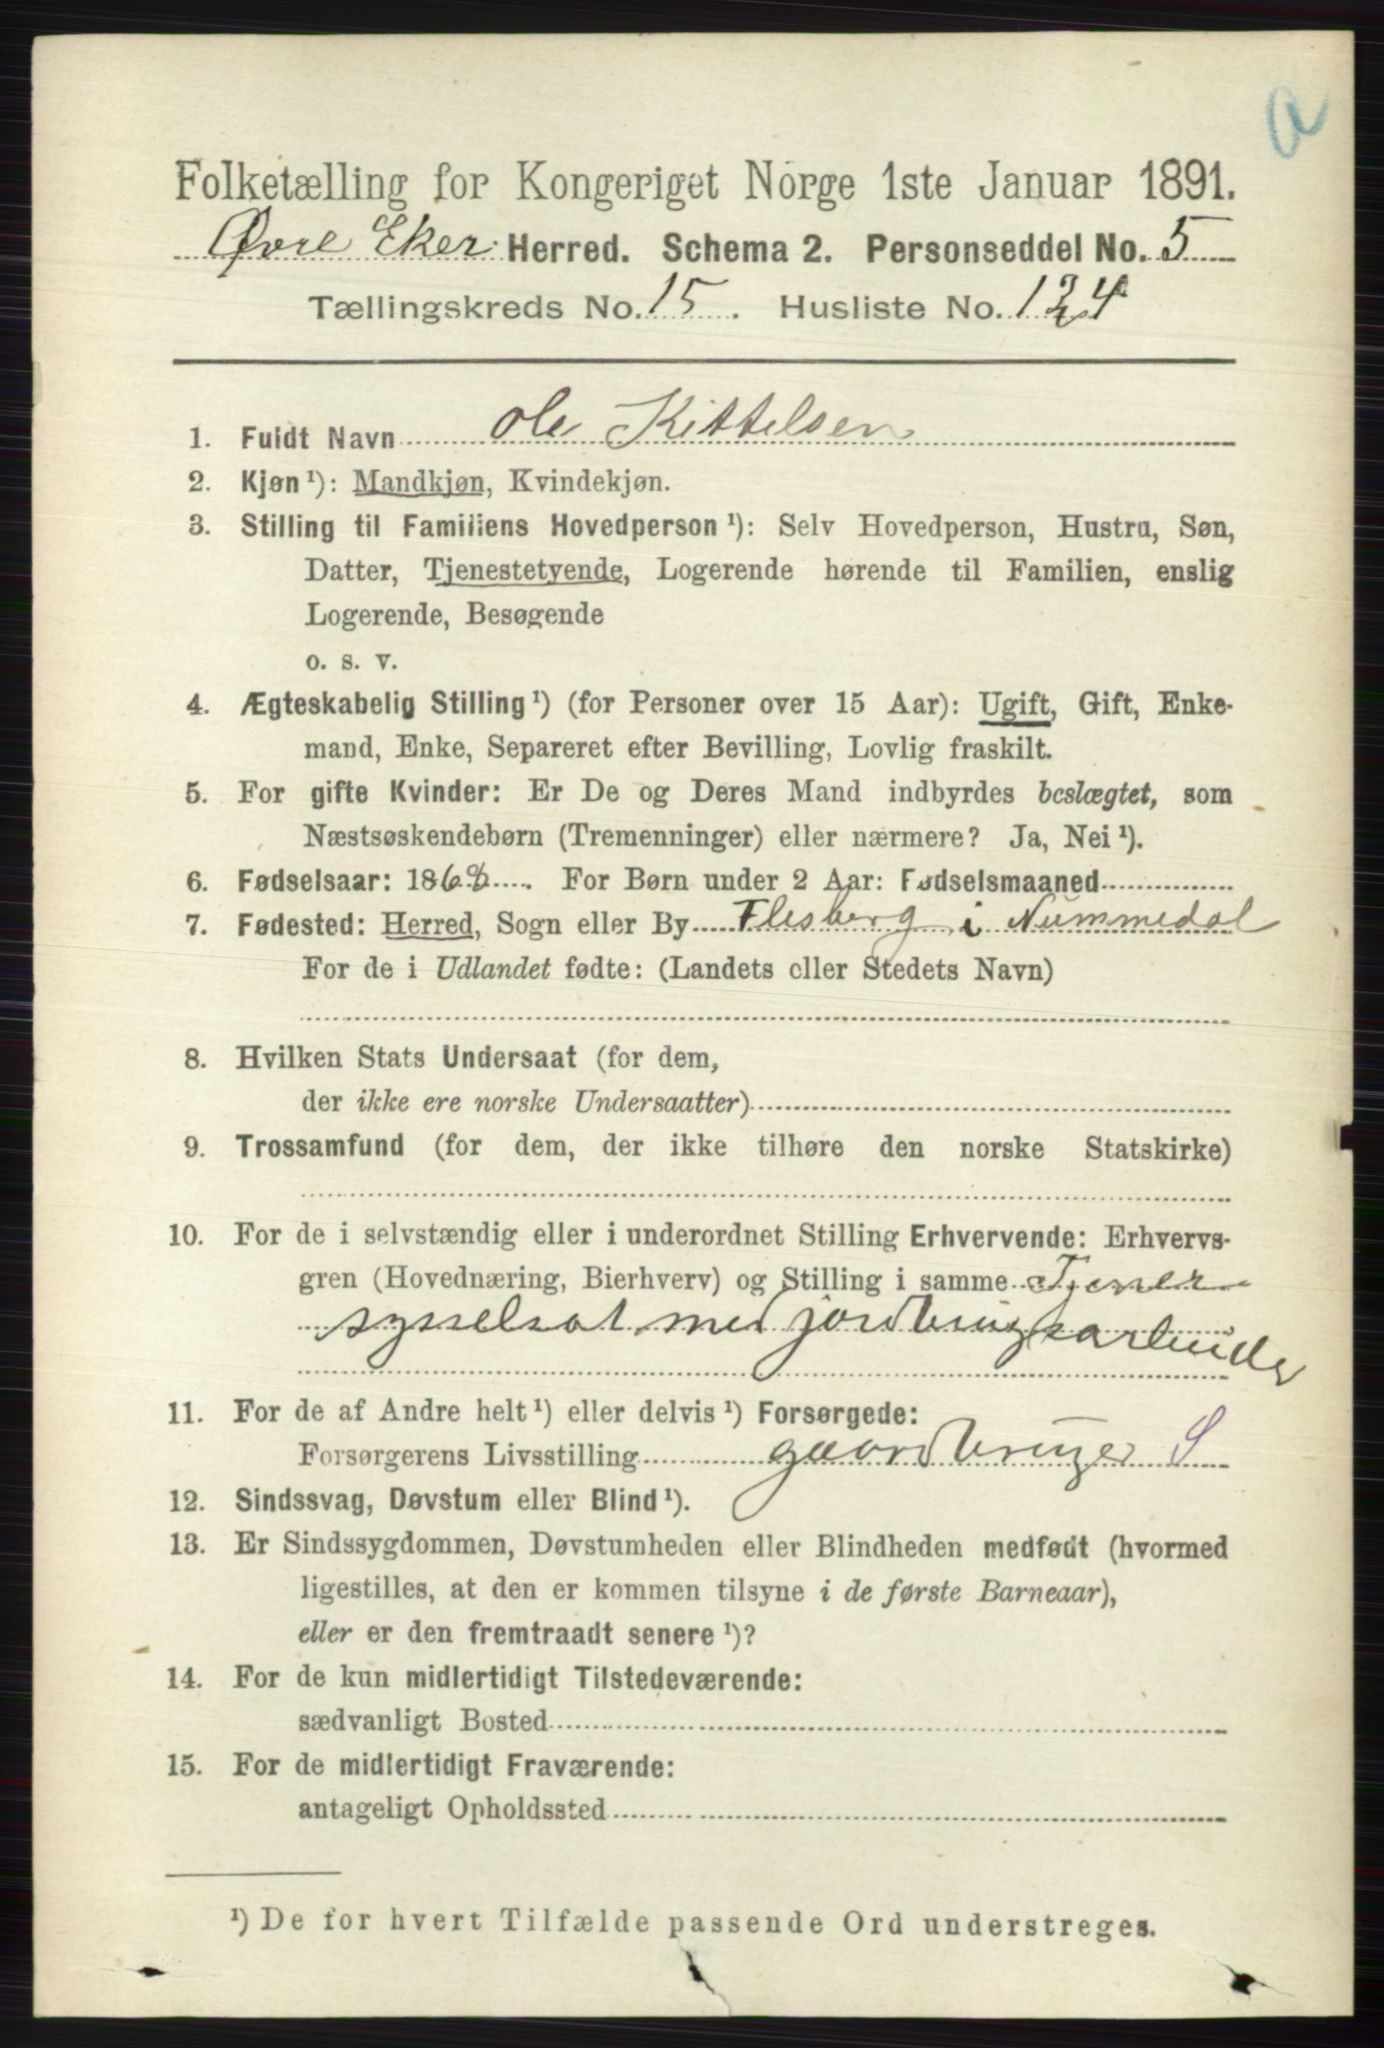 a
Folketælling for Kongeriget Norge 1ste Januar 1891.
Øvre Eker Herred. Schema 2. Personseddel No. 5
Tællingskreds No. 15. Husliste No. 124
1. Fuldt Navn Ole Kittelsen
2. Kjøn ¹): Mandkjøn, Kvindekjøn.
3. Stilling til Familiens Hovedperson ¹): Selv Hovedperson, Hustru, Søn,
Datter, Tjenestetyende, Logerende hørende til Familien, enslig
Logerende, Besøgende
o. s. v.
4. Ægteskabelig Stilling ¹) (for Personer over 15 Aar): Ugift, Gift, Enke-
mand, Enke, Separeret efter Bevilling, Lovlig fraskilt.
5. For gifte Kvinder: Er De og Deres Mand indbyrdes beslægtet, som
Næstsøskendebørn (Tremenninger) eller nærmere? Ja, Nei ¹).
6. Fødselsaar: 1868. For Børn under 2 Aar: Fødselsmaaned
7. Fødested: Herred, Sogn eller By Flesberg i Nummedal
For de i Udlandet fødte: (Landets eller Stedets Navn)
8. Hvilken Stats Undersaat (for dem,
der ikke ere norske Undersaatter)
9. Trossamfund (for dem, der ikke tilhøre den norske Statskirke)
10. For de i selvstændig eller i underordnet Stilling Erhvervende: Erhvervs-
gren (Hovednæring, Bierhverv) og Stilling i samme Tjener
sysselsat med jordbrugsarbeide
11. For de af Andre helt ¹) eller delvis ¹) Forsørgede:
Forsørgerens Livsstilling gaardbruger S
12. Sindssvag, Døvstum eller Blind ¹).
13. Er Sindssygdommen, Døvstumheden eller Blindheden medfødt (hvormed
ligestilles, at den er kommen tilsyne i de første Barneaar),
eller er den fremtraadt senere ¹)?
14. For de kun midlertidigt Tilstedeværende:
sædvanligt Bosted
15. For de midlertidigt Fraværende:
antageligt Opholdssted
¹) De for hvert Tilfælde passende Ord understreges.